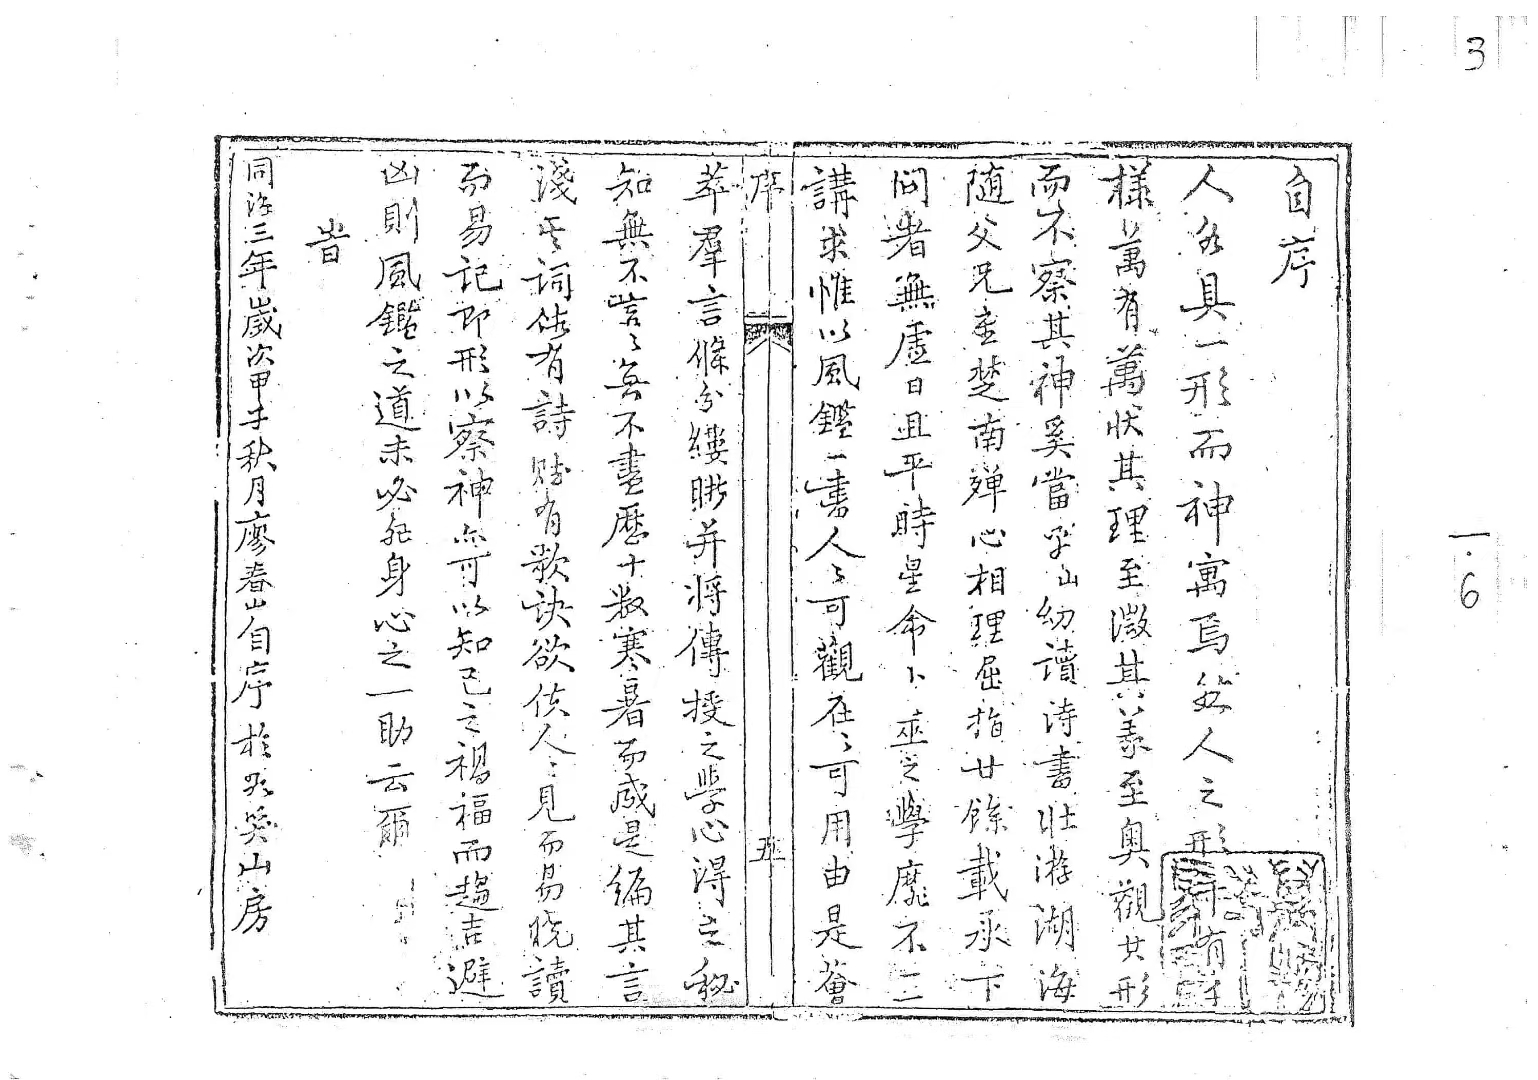 3
一.6
自序
人各具一形而神寓焉然人之形有千
樣萬有萬狀其理至微其義至奧觀其形
而不察其神奚當乎山幼讀詩書壯游湖海
随父兄至楚南殫心相理屈指廿餘載承下
问者無虛日且平時星命卜巫之學靡不一二
講求惟以風鑑一書人〻可觀在〻可用由是薈
序
五
萃羣言條分縷晰并將傳授之學心淂之秘
知無不言〻無不盡歷十数寒暑而成是编其言
淺其詞佔有詩賦有歌诀欲使人〻見而易晓讀
而易記即形以察神亦可以知已之禍福而趨吉避
凶則風鑑之道未必非身心之一助云爾
旹
同治三年歲次甲子秋月廖春山自序於山房